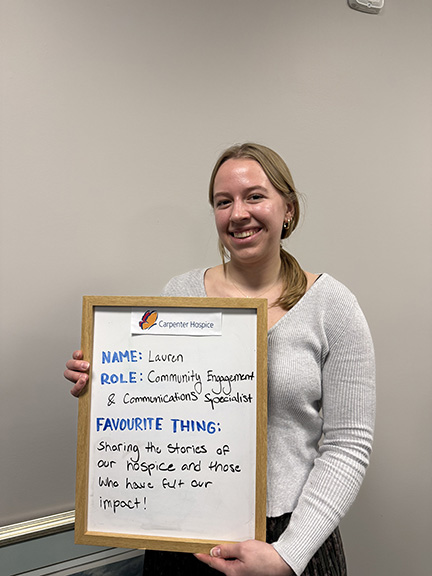 Carpenter Hospice
NAME: Lauren
ROLE: Community Engagement
& Communications Specialist
FAVOURITE THING:
Sharing the stories of
our hospice and those
who have felt our
impact!